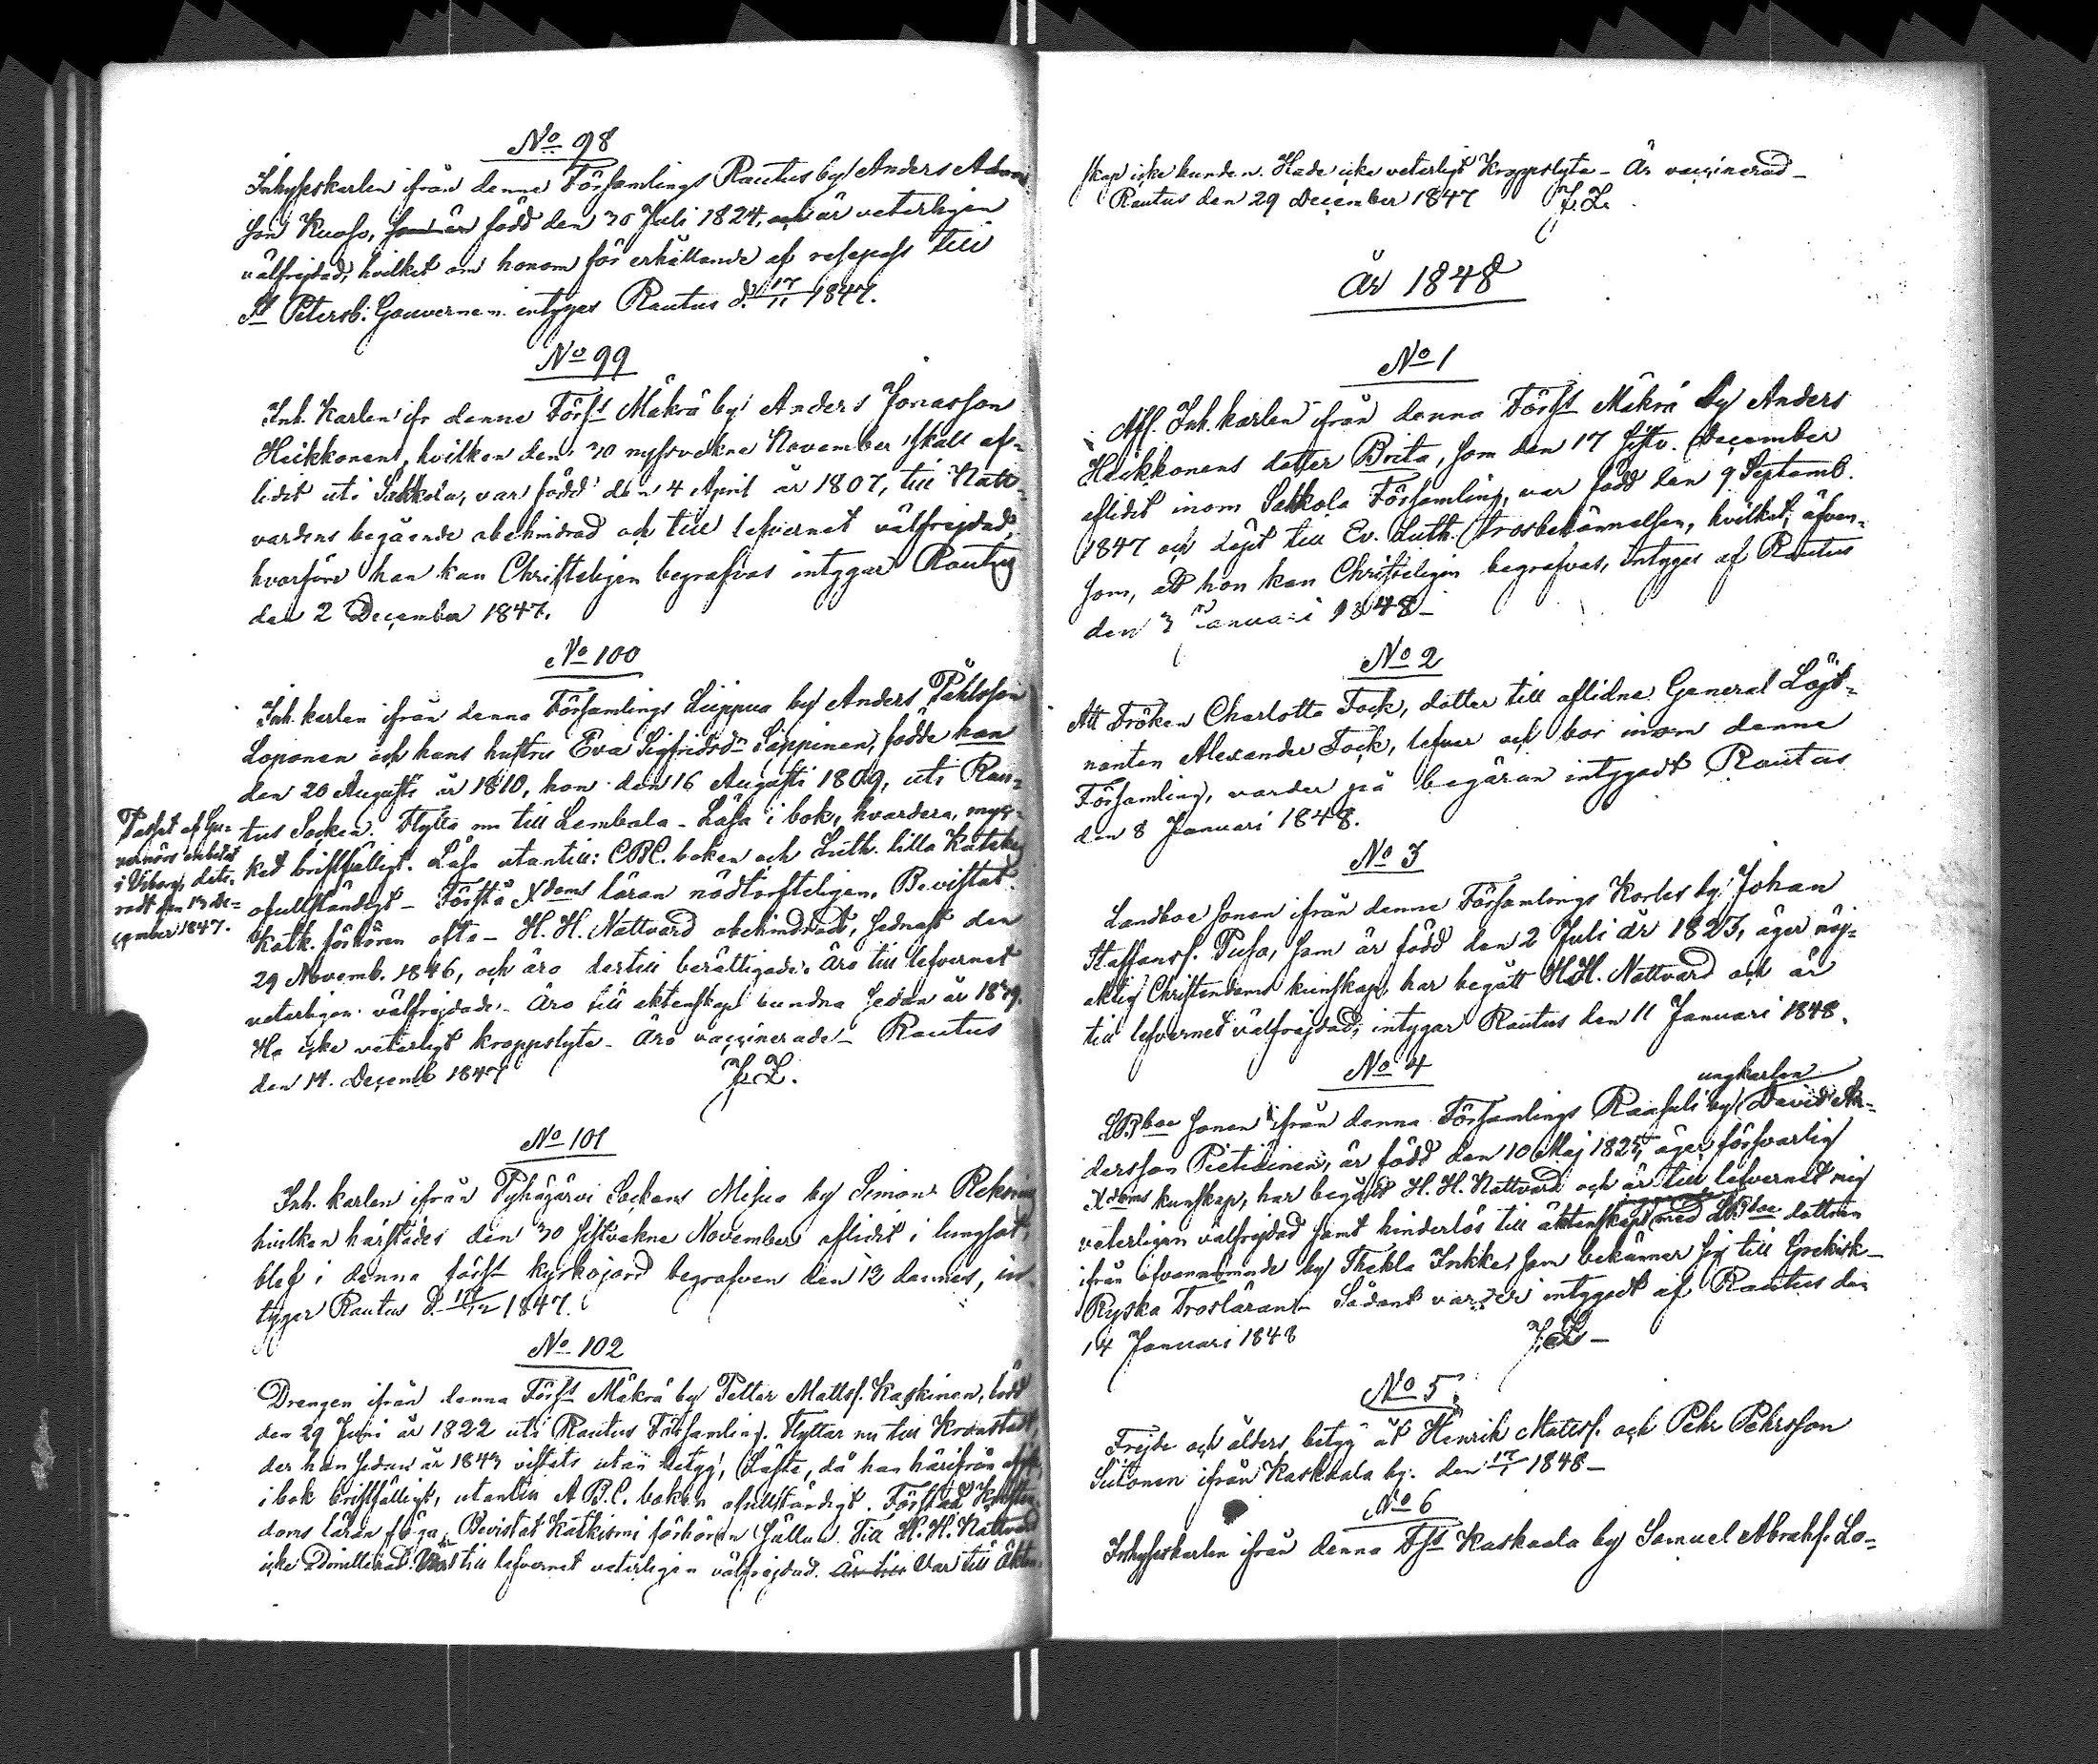 No 98
Inhyseskarlen ifrån denna Församlings Rautus by Anders Adams
son Kuoso, som är född den 30 Juli 1824, och är veterligen
välfrejdad, hvilket om honom för erhållande af resepass till
St Petersb. Gouvernem. intygas Rautus d. 17/11 1847.
No 99
Inh. Karlen ifr denna Förs:s Mäkrä by Anders Jonasson
Heikkonen, hvilken den 30 nyssvekne November skall af-
lidit uti Sakkola, var född den 4 April år 1807, till Natt-
vardens begående obehindrad och till lefvernet välfrejdad,
hvarföre han kan Christeligen begrafvas intygar Rautus
den 2 December 1847.
No 100
Inh. karlen ifrån denna Församlings Liippua by Anders Påhlsson
Loponen och hans hustru Eva Sigfridsdr Läppinen, födde han
den 20 Augusti år 1810, hon den 16 Augusti 1809, uti Rau-
tus Socken. Flytta nu till Lembala - Läsa i bok, hvardera, myc-
ket bristfälligt. Läsa utantill: ABC. boken och Luth. lilla Kateches
ofullständigt - Förstå Xdoms läran nödtorfteligen. Bevistat
Katk. förhören ofta - H. H. Nattvard obehindradt, sednast den
29 Novemb. 1846, och äro dertill berättigade. Äro till lefvernet
veterligen välfrejdade - Äro till äktenskap bundna sedan år 1839.
Ha icke veterligt kroppslyte - Äro vaccinerade - Rautus
den 14. Decemb 1847 J. L.
Passet af Gu-
vernörs embetet
i Viborg, date-
radt den 13 De-
cember 1847.
No 101
Inh. karlen ifrån Pyhäjärvi Sockens Misua by Simon Rekoin
hvilken härstädes den 30 sistvekne November aflidit i lungsot,
blef i denna förs:s kyrkojord begrafven den 12 dennes, in-
tygar Rautus d. 17/12 1847.
No 102
Drengen ifrån denna Förs:s Mäkrä by Petter Mattss. Kaskinen, född
den 29 Juni år 1822 uti Rautus Församling. Flyttar nu till Kronstadt,
der han sedan år 1843 vistats utan betyg, Läste, då han härifrån afgick
i bok bristfälligt, utantill A B.C. boken ofullständigt. Förstod Kristen
doms läran föga. Bevistat Katkismi förhören sällan. Till H. H. Nattvard
icke admitterad. Var till lefvernet veterligen välfrejdad. Är till Var till Äkten-
skap icke bunden. Hade icke veterligt Kroppslyte - Är vaccinerad -
Rautus den 29 December 1847 J. L.
År 1848
No 1
Afl. Inh. karlen ifrån denna Förs:s Mäkrä by Anders
Heikkonens dotter Brita, som den 17 sistv. December
aflidit inom Sakkola Församling, var född den 9 Septemb.
1847 och döpt till Ev. Luth. trosbekännelsen, hvilket, äfven-
som, att hon kan Christeligen begrafvas, intygas af Rautus
den 3 Januari 1848 -
No 2
Att Fröken Charlotta Fock, dotter till aflidne General Löjt-
nanten Alexander Fock, lefver och bor inom denna
Församling, varder på begäran intygadt Rautus
den 8 Januari 1848.
No 3
Landboe sonen ifrån denna Församlings Korles by Johan
Staffanss. Pusa, som är född den 2 Juli år 1823, äger nöj-
aktig Christendoms kunskap, har begått H. H. Nattvard och är
till lefvernet välfrejdad, intygar Rautus den 11 Januari 1848.
No 4
ungkarlen
LBboe sonen ifrån denna Församlings Raasuli by David An-
dersson Pietiäinen, är född den 10 Maj 1825, äger försvarlig
Xdoms kunskap, har begått H. H. Nattvard och är till lefvernet mig
veterligen välfrejdad samt hinderlös till äktenskap med LBboe dottren
ifrån ofvannämnde by Thekla Inkkes som bekänner sig till Grekisk-
Ryska Trosläran - Sådant varder intygadt af Rautus den
14 Januari 1848 J. L -
No 5
Frejde och ålders betyg åt Henrik Mattss. och Pehr Pehrsson
Sutonen ifrån Kaskaala by. den 17/1 1848 -
No 6
Inhyseskarlen ifrån denna Fs:s Kaskaala by Samuel Abrahs. Lo-